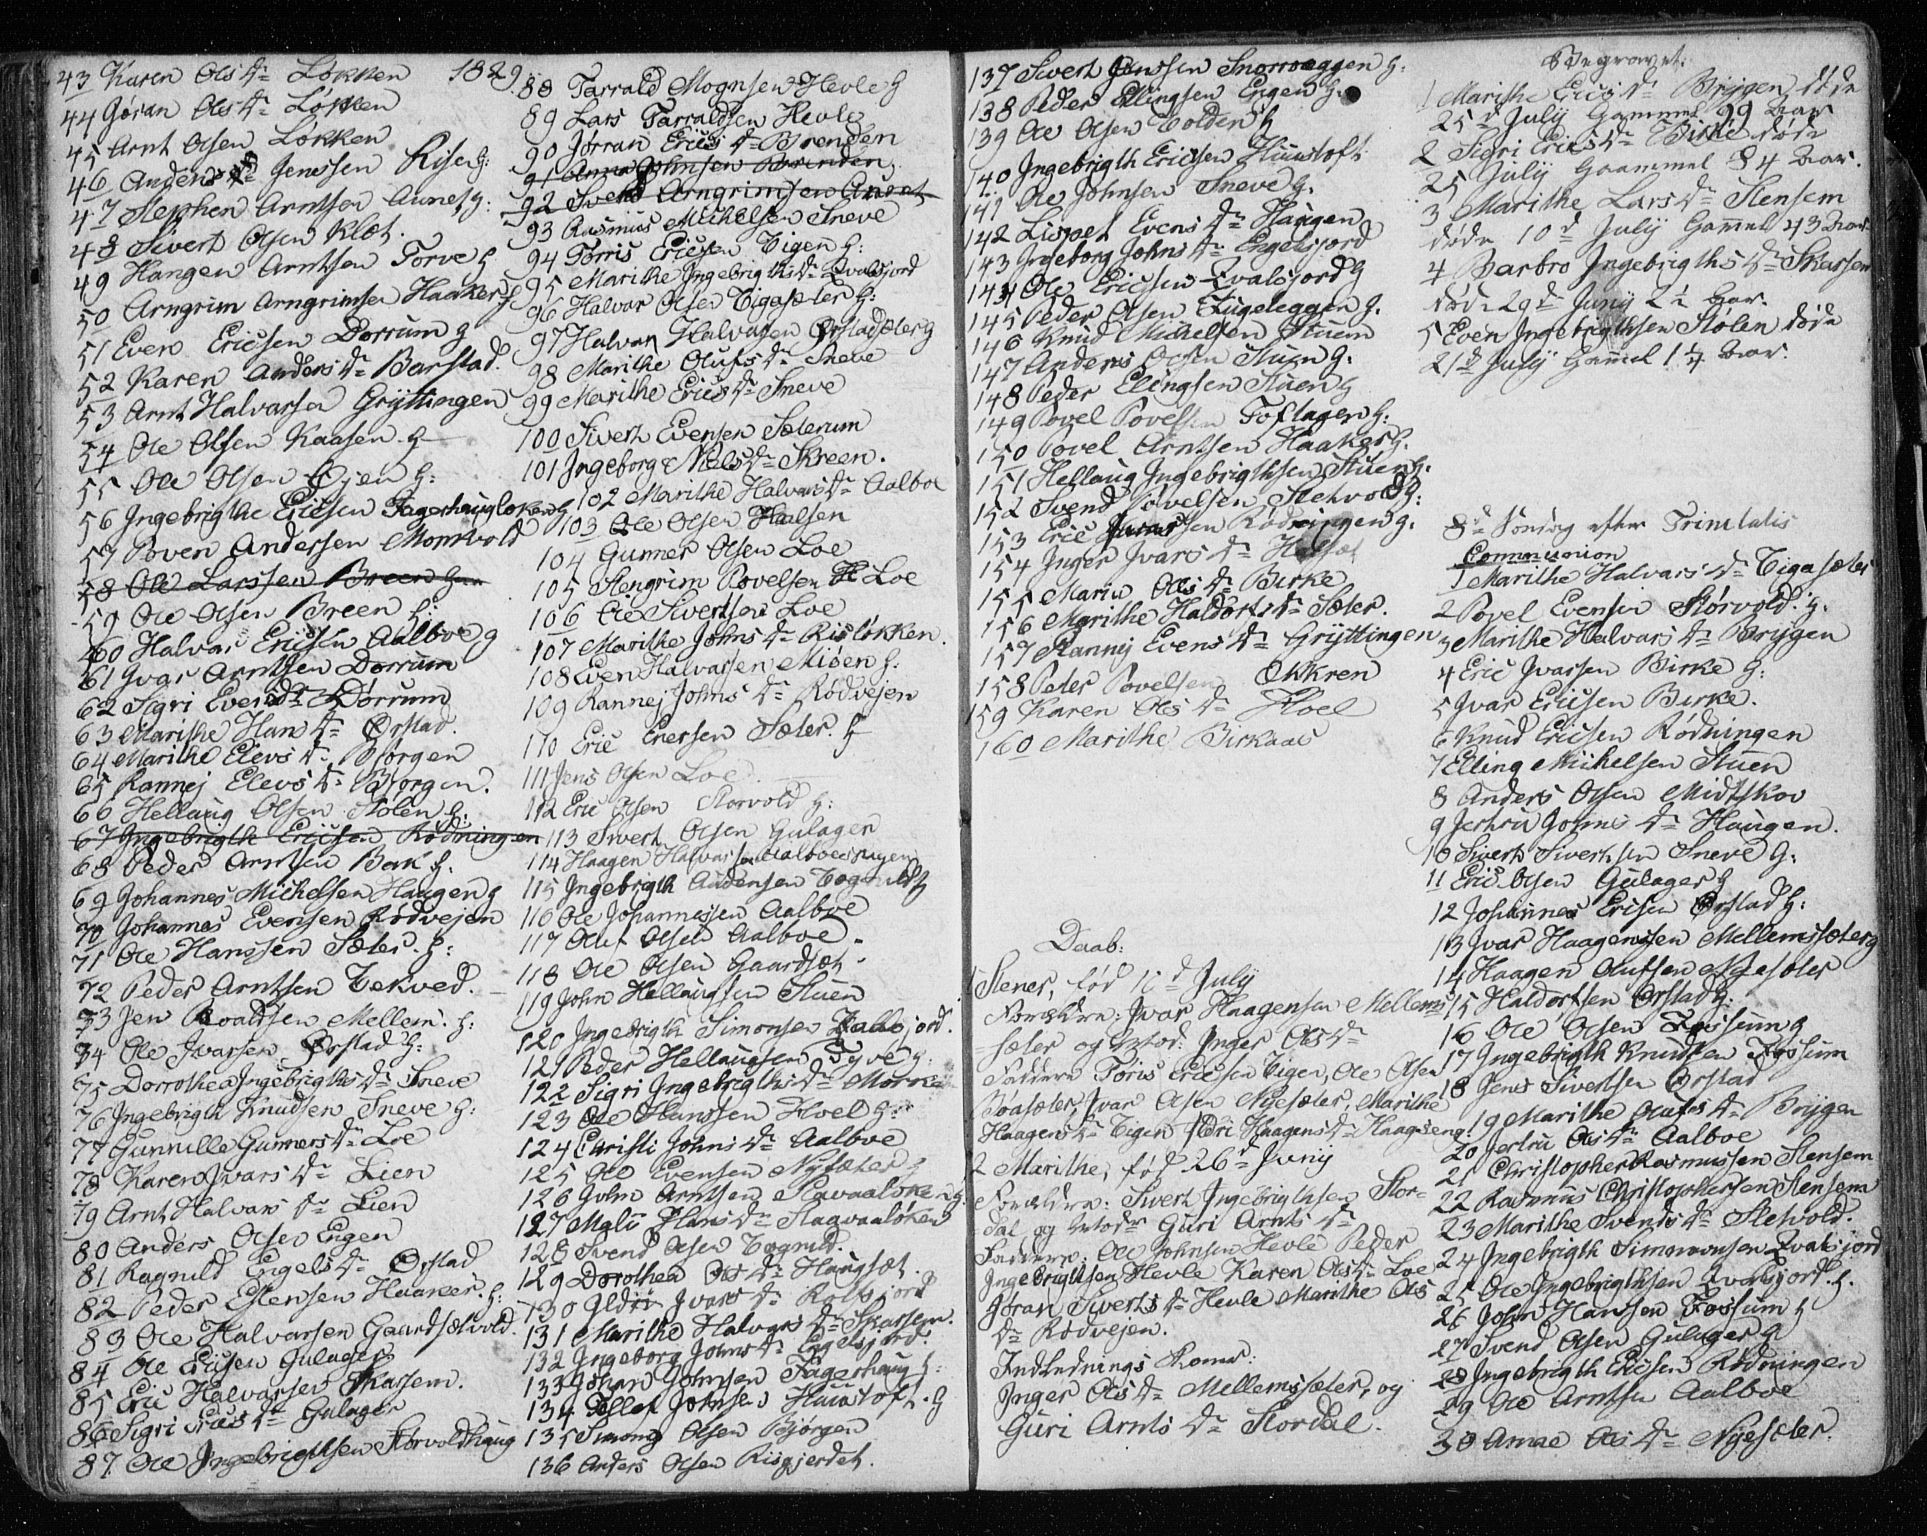 43 Karen Ols Dr Løkken 1829
44 Gøran Ols Dr Løkken
45 Arnt Olsen Løkken
46 Anders Jenssen Risen g:
47 Stephen Arntsen Aunet g:
48 Sivert Olsen Klæt.
49 Hangen Arntsen Torve g
50 Arngrim Arngrimsen Haaker g
51 Even Ericsen Dorrum g
52 Karen Anders Dr Barstad.
53 Arnt Halvarsen Gryttingen
54 Ole Olsen Kaasen. g
55 Ole Olsen Øjen g:
56 Ingebrigthe Ericsen Fagerhaugløken g
57 Poven Anderssen Mopkvold
58 Ole Larssen Breen
59 Ole Olsen Breen g:
60 Halvar Ericsen Aalboe g
61 Ivar Arntsen Dorrum
62 Sigri Evens Dr Dørrum
63 Marithe Hans Dr Ørstad.
64 Marithe Elevs Dr Bjørgen
65 Rannej Elevs Dr Bjørgen.
66 Hellaug Olsen Stølen g:
67 Ingebrigth Ericsen Rødningen
68 Peder Arntsen Bak g.
69 Johannes Michelsen Haugen g
70 Johannes Evensen Rødvejen
71 Ole Hanssen Sæter. g:
72 Peder Arntsen Tekved.
73 Jen Roaldsen Mellem. g:
74 Ole Ivarsen Ørstad g:
75 Dorrothea Ingebrigths Dr Sneve
76 Ingebrigth Knudsen Sneve g:
77 Gunnille Gunners Dr Loe
78 Karen Ivars Dr Lien
79 Arnt Halvars Dr Lien
80 Anders Olsen Engen
81 Ragnild Engels Dr Ørstad
82 Peder Estensen Haaker. g:
83 Ole Halvarsen Gaardsætvold.
84 Ole Ericsen Gulager
85 Eric Halvarsen Skarsem.
86 Sigri Erics Dr Gulager
87 Ole Ingebrigthsen Størvoldhaug
88 Tarrald Mognsen Hevle g
89 Lars Tarraldsen Hevle
90 Jørran Erics Dr Brenden
91 Anne Johnsen Brenden
92 Svend Arngrimsen Aunet
93 Rasmus Michelsen Sneve
94 Torris Ericsen Eigen g:
95 Marithe Ingebrigths Dr Qvalsjord
96 Halvar Olsen Eigasæter g:
97 Halvar Halvarsen Ørstadsæter g
98 Marithe Olufs Dr Sneve
99 Marithe Erics Dr Sneve
100 Sivert Evensen Sæterum
101 Ingeborg Niels Dr Skreen.
102 Marithe Halvars Dr Aalboe
103 Ole Olsen Haalsen
104 Gunner Olsen Loe
105 Stengrim Povelsen Loe
106 Ole Sivertsen Loe
107 Marithe Johns Dr Risløkken.
108 Even Halvarsen Mjøen g:
109 Rannej Johns Dr Rødvejen
110 Eric Enersen Sæter. g
111 Jens Olsen Loe.
112 Eric Olsen Storvold g:
113 Sivert Olsen Gulager
114 Haagen Halvarsen Aalboeshagen
115 Ingebrigth Audensen Bognild g
116 Ole Johannessen Aalboe
117 Oluf Olsen Aalboe.
118 Ole Olsen Gaardsæt.
119 John Hellaugsen Stuen
120 Ingebrigth Simonsen
121 Peder Hellaugsen Tyve g.
122 Sigri Ingebrigths Dr
123 Ole Hanssen Hoel g:
124 Christi Johns Dr Aalboe
125 Ole Evensen Nysæter g
126 John Arntsen g
127 Mali Hans Dr
128 Svend Olsen Bognild.
129 Dorothea Ols Dr Haugsæt.
130 Ildri Ivars Dr
131 Marithe Halvars Dr Skarsem.
132 Ingeborg Johns Dr Engelsjord.
133 Johan Johnsen Fagerhaug g:
134 Johnsen Hunstoft. g
135 Simong Olsen Bjørgen
136 Anders Olsen Risgjerdet.
137 Sivert Jenssen Snorroeggen g:
138 Peder Ellingsen Engen g:
139 Ole Olsen Volden g
140 Ingebrigth Ericsen Hunstoft
141 Ole Johnsen Sneve g.
142 Lispet Evens Dr Haugen
143 Ingeborg Johns Dr Engelsjord
144 Ole Ericsen Qvalsjord g
145 Peder Olsen Fugeleggen g.
146 Knud Michelsen Stuen
147 Anders Olsen Stuen g.
148 Peder Elingsen Stuen g
149 Povel Povelsen Toftagen g:
150 Povel Arntsen Haaker g.
151 Hellaug Ingebrigthsen Stuen g.
152 Svend Povelsen Sletvold g:
153 Eric Ivarssen Rødningen g.
154 Inger Ivars Dr
155 Marin Ols Dr Birke
156 Marithe Haldors Dr Sæter.
157 Rannej Evens Dr Gryttingen
158 Peter Povelsen Økkren
159 Karen Ols Dr Hoel
160 Marithe Birkaas
Daab:
1 Stener, fød 10 d July
Forældre: Ivar Haagensen Mellems
sæter og Inger Ols Dr
Faddere Toris Ericsen Eigen, Ole Olsen
Bøasæter, Ivar Olsen Nyesæter, Marithe
Haagens Dr Eigen Ildri Haagens Dr Haagseng.
2 Marithe, fød 26 d Juny
Forældre: Sivert Ingebrigthsen Stor-
dal, og Guri Arnts Dr
Faddere: Ole Johnsen Hevle Peder
Ingebrigthsen Hevle Karen Ols Dr Loe
Jøran Siverts Dr Hevle Marithe Ols
Dr Rødvejen.
Indlednings Koner:
Inger Ols Dr Mellemsæter, og
Guri Arnts Dr Stordal.
Begravet:
1 Marithe Erics Dr Brygen døde
25 d July Gammel 99 Aar
2 Sigri Erics Dr Birke døde
25 July Gaammel 84 Aar.
3 Marithe Lars Dr Stensem
døde 10 d July Gamel 43 Aar
4 Barbro Ingebrigths Dr Skarsem
døde 29 d Juny 2½ Aar.
5 Even Ingebrigthsen Stølen døde
21 d July Gamel 1¼ Aar.
8 d Søndag efter Trinitatis
Communion
1 Marithe Halvars Dr Eigasæter
2 Povel Evensen Størvold. g.
3 Marithe Halvars Dr Brygen
4 Eric Ivarsen Birke g:
5 Ivar Ericsen Birke.
6 Knud Ericsen Rødningen
7 Elling Michelsen Stuen
8 Anders Olsen Midtskov
9 Jertru Johns Dr Haugen.
10 Sivert Sivertsen Sneve g:
11 Eric Olsen Gulager g
12 Johannes Ericsen Ørstad g:
13 Ivar Haagensen Mellemsæter g
14 Haagen Olufsen Nyesæter
15 Haldorsen Ørstad g:
16 Ole Olsen Fossum g
17 Ingebrigth Knudsen Fossum
18 Jens Sivertsen Ørstad
19 Marithe Olufs Dr Brygen
20 Jertru Ols Dr Aalboe
21 Christopher Rasmussen Stensem
22 Rasmus Christophersen Stensem
23 Marithe Svends Dr Sletvold.
24 Ingebrigth Simonsen Qvalsjord
25 Ole Ingebrigthsen Qvalsjord. g.
26 John Hansen Fossum g
27 Svend Olsen Gulager g
28 Ingebrigth Ericsen Rødningen
29 Ole Arntsen Aalboe
30 Anne Ols Dr Nyesæter.